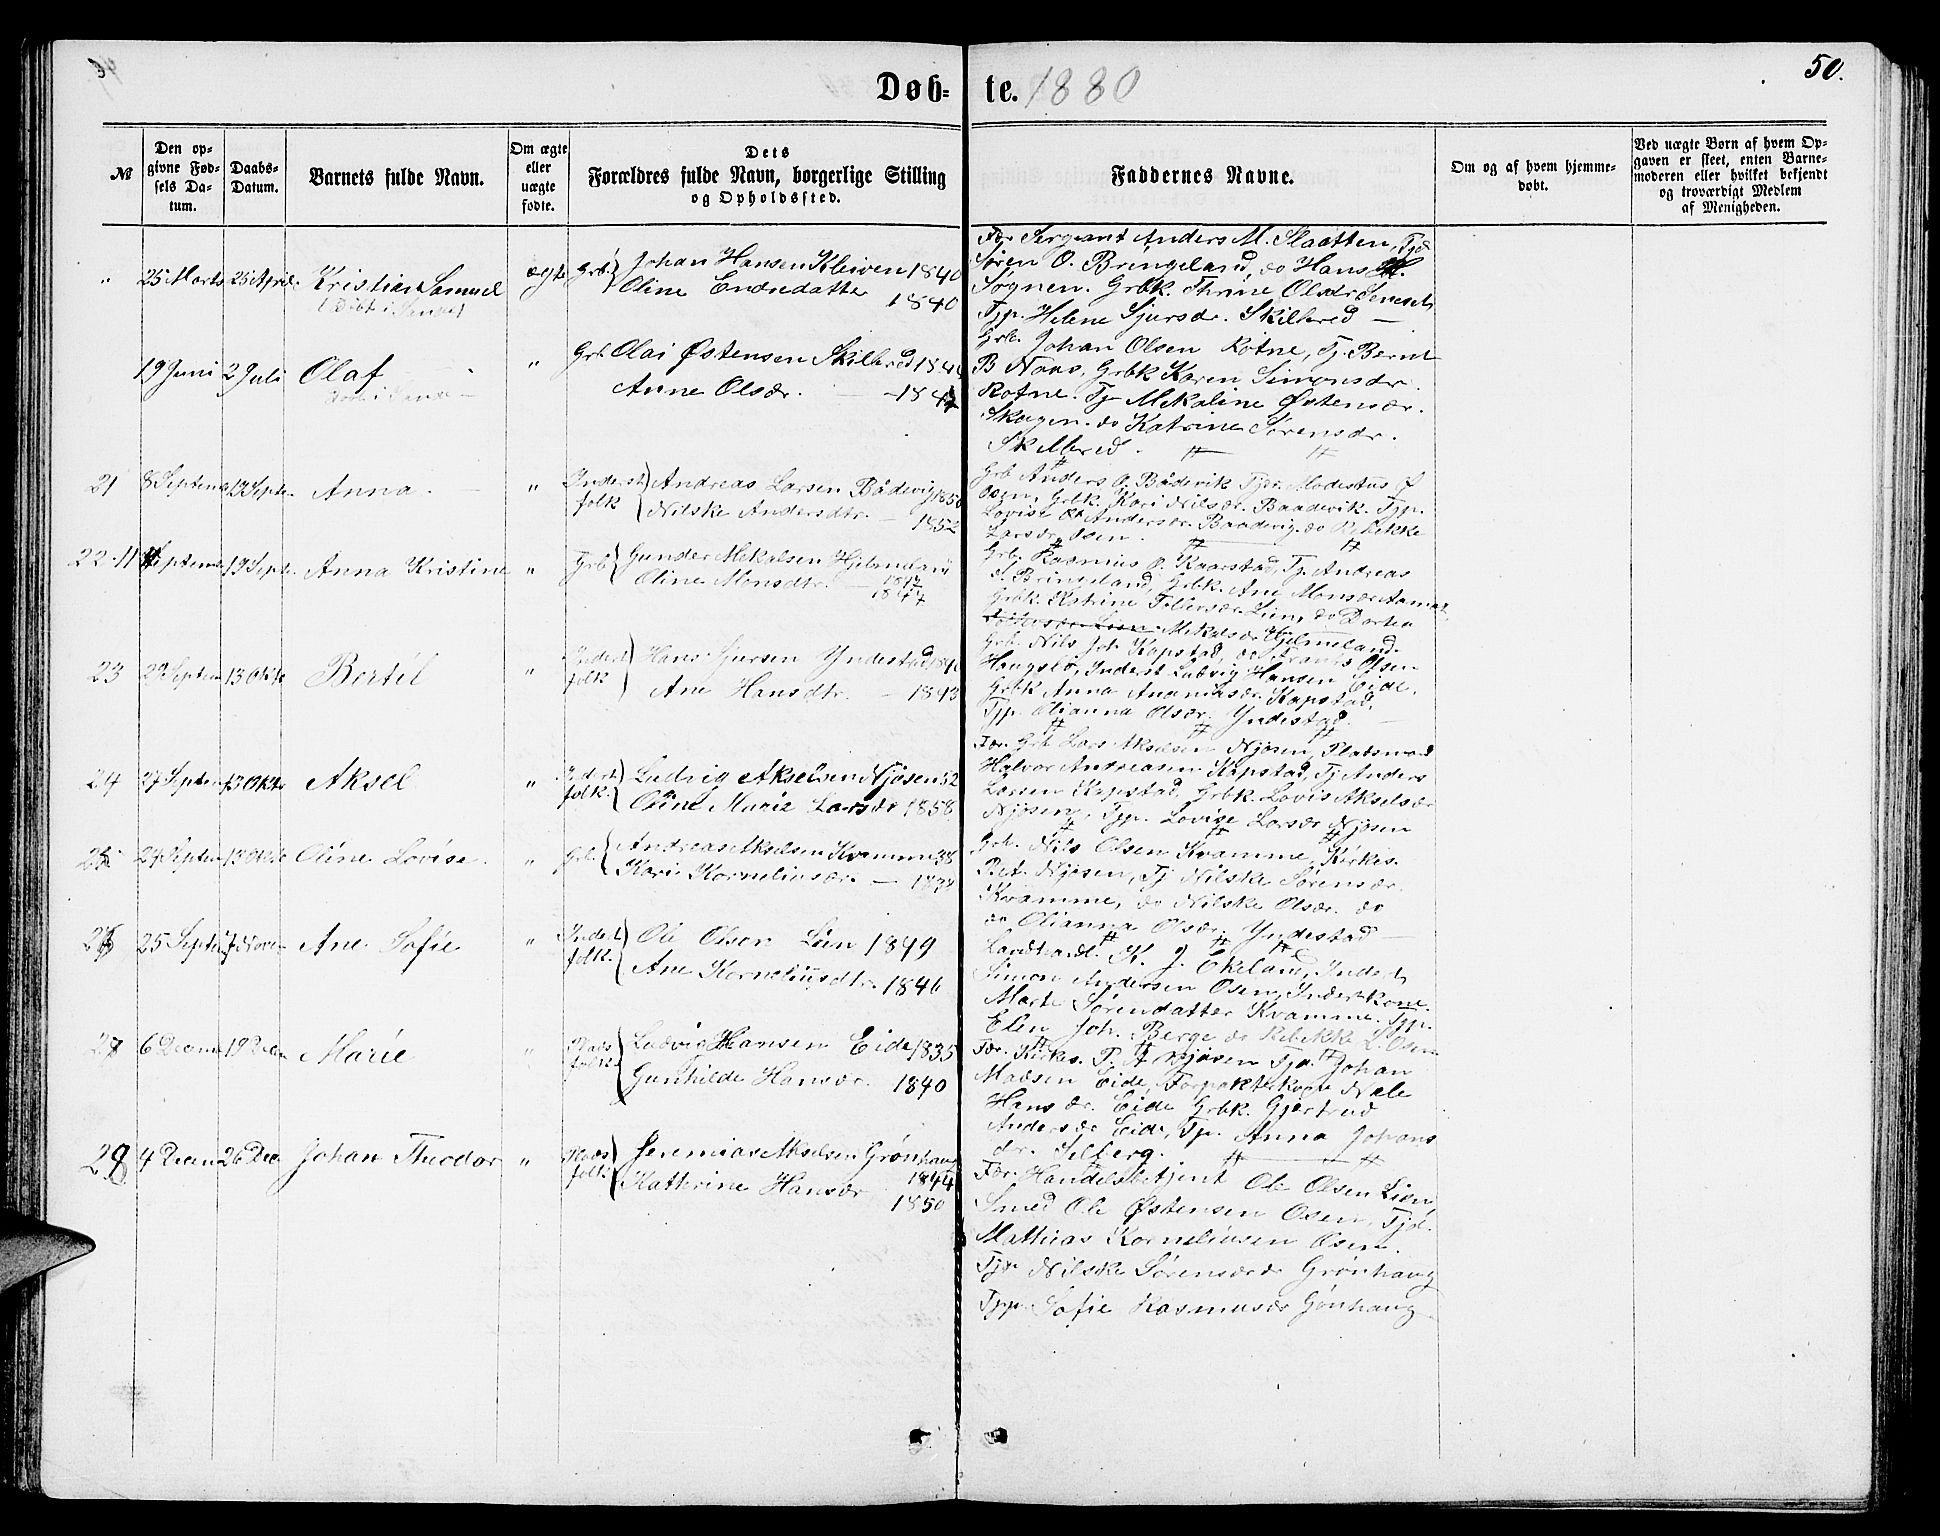 50.
Døb= te. 1880
№
Den op-
givne Fød-
sels Da-
tum.
Daabs-
Datum.
Barnets fulde Navn.
Om ægte
eller
uægte
fødte.
Dets
Forældres fulde Navn, borgerlige Stilling
og Opholdssted.
Faddernes Navne.
Om og af hvem hjemme-
døbt.
Ved uægte Børn af hvem Op-
gaven er skeet, enten Barne-
moderen eller hvilket bekjendt
og troværdigt Medlem
af Menigheden.
" 25 Marts 25 April Kristian Samuel ægte Grb. Johan Hansen Kleiven 1840
Oline Endredatter 1840
Fær Sergeant Anders M. Slaatten, Tjd
Søren O. Bringeland, do Hans
Søgnen. Grbk. Thrine Olsdr
Tjp. Helene Sjursdr. Skilbred —
19 Juni 2 Juli Olaf " Grb Olai Østensen Skilbred
Anne Olsdr. —
Grb. Johan Olsen Rotne, Tj. Bernt
B Naas, Grbk Karen Simonsdr.
Rotne. Tj Mekaline Østensdr.
Skogen. do Katrine Sørensdr.
Skilbred.
21 8 Septem 19 Septr. Anna " Inderst
folk Andreas Larsen Bådevig 1850
Nilske Andersdtr. — 1852
Grb Anders O. Bådevik Tjdr. Modestus Ø
Osen, Grbk. Kari Nilsdr. Baadevik. Tjp.
Lovise Andersdr. Baadevig. do Rebekke
Larsdr. Osen.
22 11 Septem 19 Septr. Anna Kristine " Grb Gunder Mekalsen Hjelmeland
Oline Monsdtr. —
1844
Grb. Rasmus O. Kaarstad, Tj. Andreas
S. Bringeland, Grbk. Ane Monsdr
Grbk. Katrine Tollersdr. Lien, do Dorthea
Mekalsdr Hjelmeland.
23 Septem Okto Bertel " Inderst
folk Hans Sjursen Yndestad
Ane Hansdtr. — 1843
Grb. Nils Joh Kapstad, do Frants Olsen
Haugslø, Inderst Ludvig Hansen Eide,
Grbk Anna Ananiasdr. Kapstad,
Tjp. Olianna Olsdr. Yndestad.
24 27 Septem Okto Aksel " Inderst
folk Ludvig Akselsen Njøsen 52
Oline Marie Larsdr 1858
Fær. Grb Lars Akselsen Njøsen, Pladsmand
Halvor Andreasen Kapstad, Tj. Anders
Larsen Kapstad, Grbk. Lovis Akselsdr
Njøsen, Tjp. Lovise Larsdr Njøsen
25 Septem Okto Oline Lovise " Grb. Andreas Akselsen Kvamme 38
Kari Korneliusdr. —
Grb. Nils Olsen Kvamme, Kirkes.
Njøsen, Tj Nilske Sørensdr.
Kvamme, do Nilske Olsdr. do
do Olianna Olsdr. Yndestad —
26 25 Septem 7 Nove Ane Sofie " Inderst
folk Ole Olsen Lien 1849
Ane Korneliusdtr. 1846
Landhand. K. J. Ekeland, Inderst
Simon Andersen Osen, Inderstkone
Marte Sørendatter Kvamme. Tjp.
Elen Joh. Berge do Rebekke L. Osen
27 6 Decem 19 Decem Marie " Plads
folk Ludvig Hansen Eide 1835
Gunhilde Hansdr. 1840
Fær. Kirks. P. A Njøsen Tjd. Johan
Madsen Eide, Forpakterkone Nele
Hansdr. Eide Grbk. Gjertrud
Andersdr Eide, Tjp. Anna Johans
dr. Selberg.
28 4 Decem 26 Dec Johan Theodor " Plads
folk Jeremias Akselsen Grønhaug
1844
Kathrine Hansdr 1850
Fær. Handelsbetjent Ole Olsen Lien
Smed Ole Østensen Osen, Tjd.
Mathias Korneliusen Osen.
Tjp. Nilske Sørensdr Grønhaug
Tjp. Sofie Rasmusdr Gønhaug